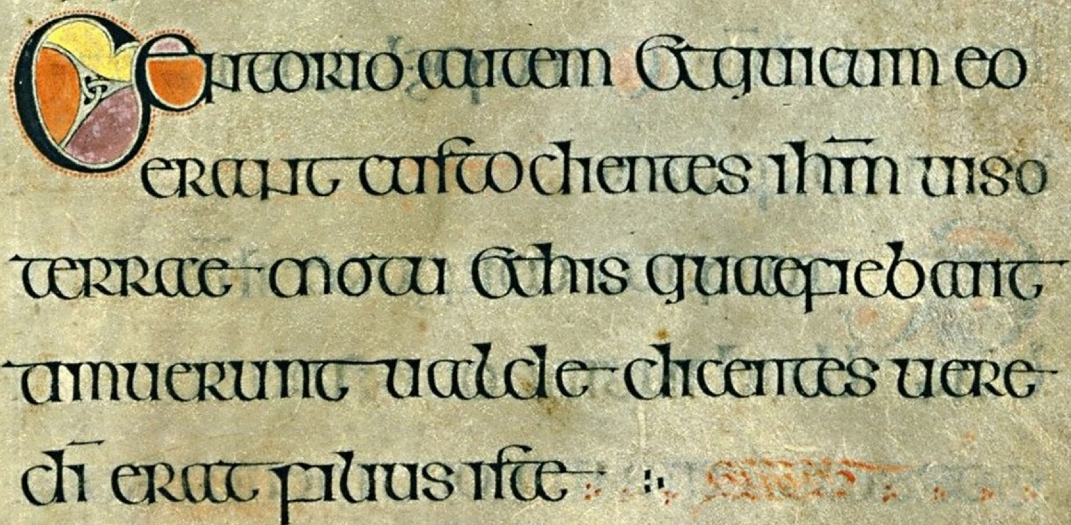 Centorio autem & qui cum eo
erant custodientes ihm uiso
terrae motu & his quae fiebant
timuerunt ualde dicentes uere
di erat filius iste